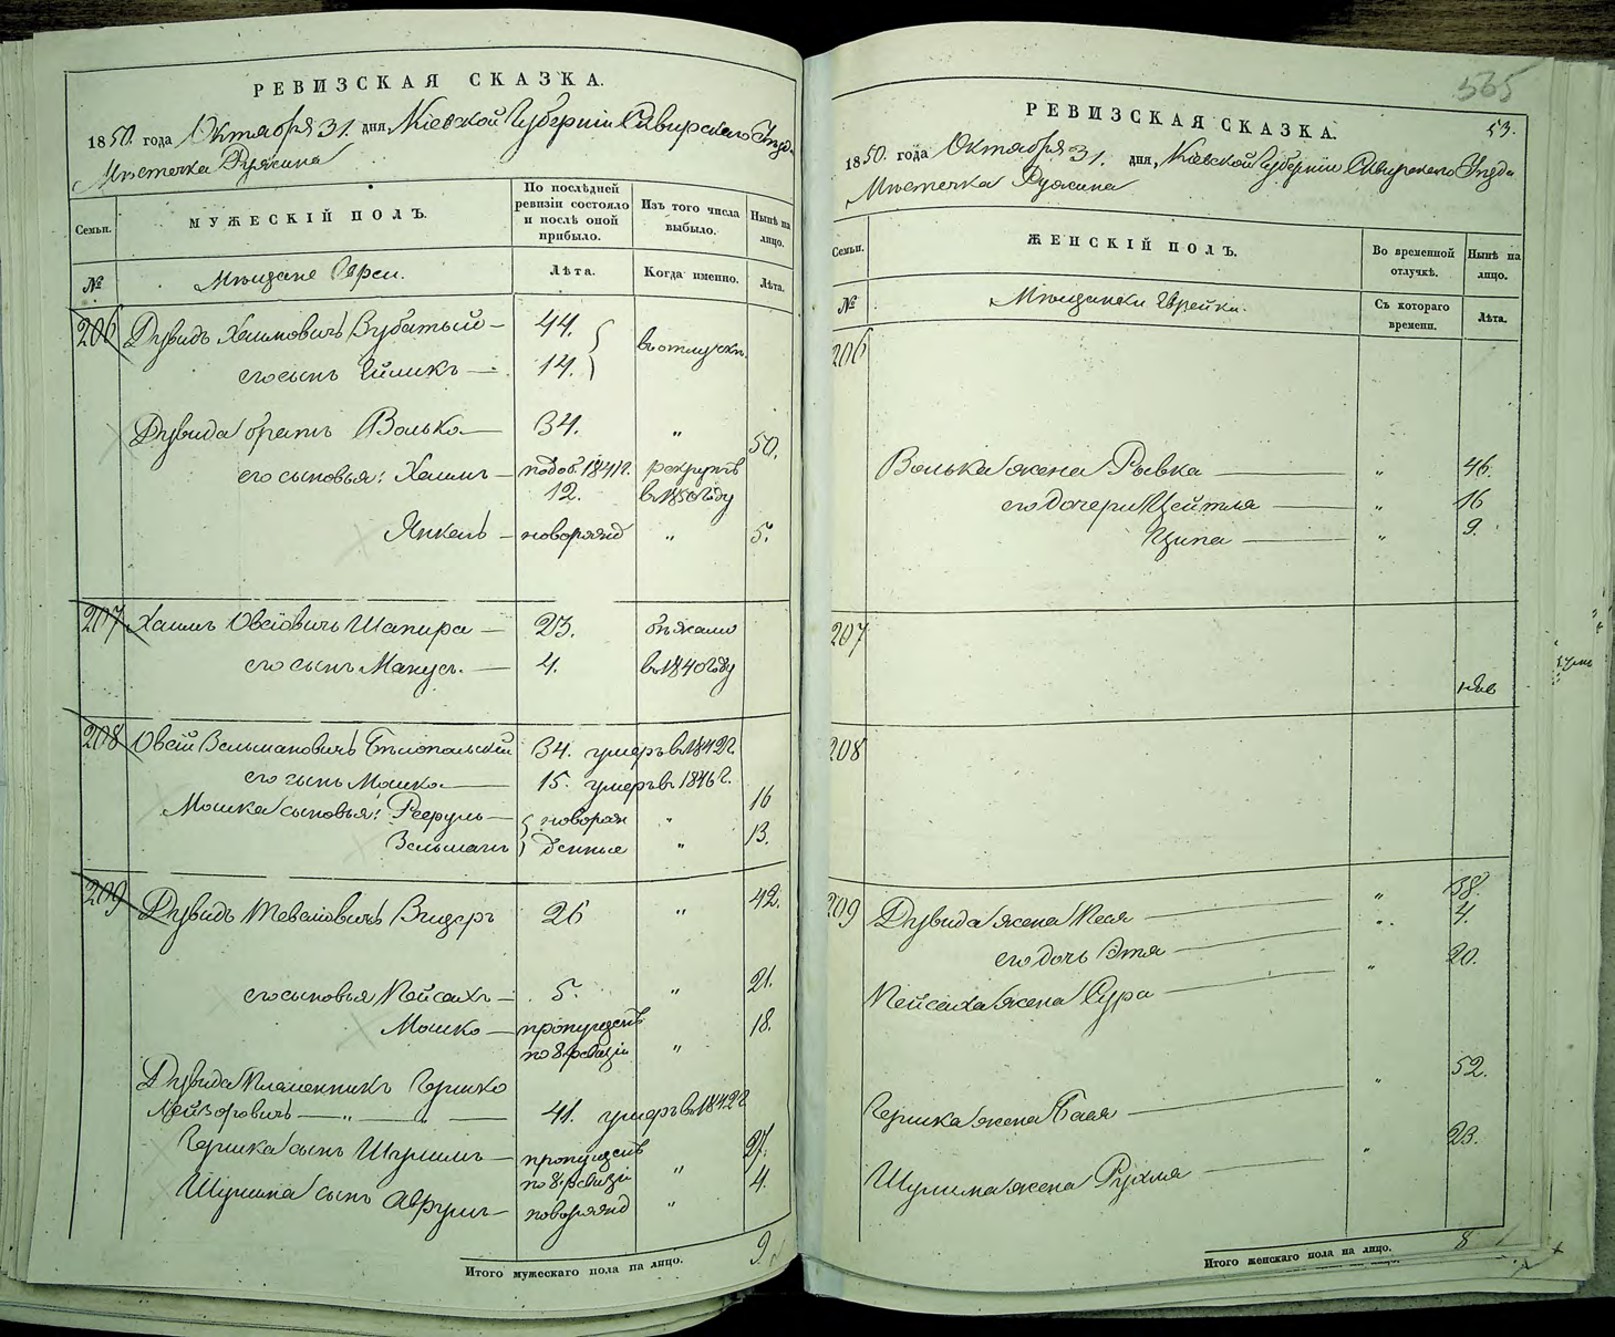 РЕВИЗСКАЯ СКАЗКА.
1850. года Октября 31. дня, Кіевской Губерніи Сквирскаго Уѣзда
Мѣстечка Ружина
Семьи. МУЖЕСКІЙ ПОЛЪ. По послѣдней ревизіи состояло и послѣ оной прибыло. Изъ того числа выбыло. Нынѣ на лицо.
№ Мѣщане Евреи. Лѣта. Когда именно. Лѣта.
206 Дувидъ Хаимовичъ Зубатый — 44.
его сынъ Ейликъ — 14. въ отлучкѣ
Дувида братъ Волько — 34. „ 50.
его сыновья: Хаимъ — по доб. 1841 г. 12. рекрутъ въ 1850 году
Янкель — новорожд „ 5.
207 Хаимъ Овсіовичъ Шапира — 23. бѣжали
его сынъ Манусъ. — 4. въ 1840 году
208 Овсій Зельмановичъ Бѣлопольскій 34. умеръ въ 1842 г
его сынъ Мошко — 15. умеръ въ 1846 г.
Мошка сыновья: Рефуль — новорож „ 16
Зельманъ денные „ 13.
209 Дувидъ Тевеловичъ Вигдеръ 26 „ 42.
его сыновья Пейсахъ — 5. „ 21.
Мошко — пропущенъ 18.
по 8 ревизіи „
Дувида племенникъ Гершко
Лейзоровичъ — „ — „ — 41. умеръ въ 1842 г
Гершка сынъ Шулимъ — пропущенъ 27.
по 8 ревизіи „
Шулима сынъ Аврумъ — новорожд „ 4.
Итого мужескаго пола на лицо. 9
565
53.
РЕВИЗСКАЯ СКАЗКА.
1850. года Октября 31. дня, Кіевской Губерніи Сквирскаго Уѣзда
Мѣстечка Ружина
Семьи. ЖЕНСКІЙ ПОЛЪ. Во временной отлучкѣ. Нынѣ на лицо.
№ Мѣщанки Еврейки. Съ котораго времени. Лѣта.
206
Волька жена Рывка — „ 46.
его дочери Цейтля — „ 16
Ципа — „ 9.
207
208
209 Дувида жена Песя — „ 38.
его дочь Этя — „ 4.
Пейсаха жена Сура — „ 20.
Гершка жена Бася — „ 52.
Шулима жена Рухля — „ 23.
Итого женскаго пола на лицо. 8